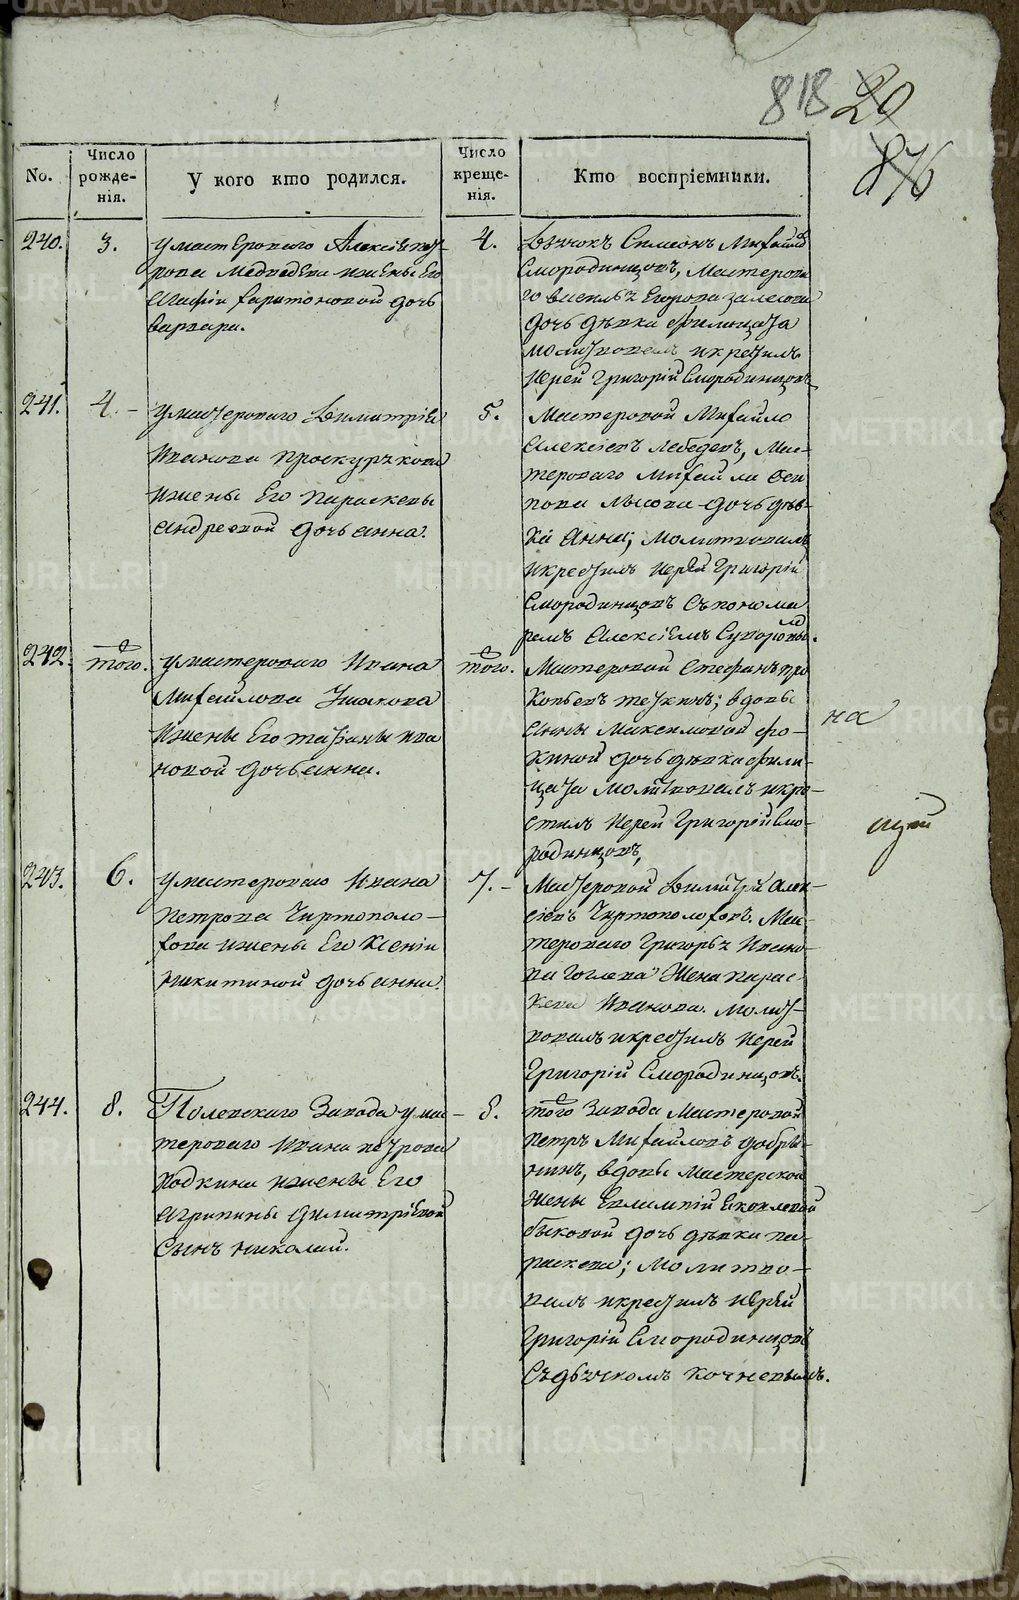 818 20
876
No.
Число рожденія.
У кого кто родился.
Число крещенія.
Кто воспріемники.
240.
3.
у мастероваго Алексія пет-
рова Медведева и жены его
Агафіи харитоновой дочь
варвара.
4.
Дьячокъ Симеонъ Михайлов
Смородинцовъ, Мастерова
го василья Егорова залесова
дочь дѣвка Филицата
молитвовалъ и крестилъ
Иерей Григорій Смородинцовъ
241.
4. –
у мастероваго Димитрія
Иванова Проскурякова
и жены Его параскевы
андреевой дочь анна.
5.
Мастеровой Михайло
Алексіевъ лебедевъ, Мас-
тероваго Михайла Оси
пова лысова дочь дѣв-
ка Анна; молитвовалъ
и крестилъ Иерей Григорій
Смородинцовъ Съ понома
ремъ Алексіемъ Суворовы.
242.
того.
у мастероваго Ивана
Михайлова Ушакова
и жены Его татіаны ива
новой дочь анна.
того.
Мастеровой Стефанъ про
Копьевъ; вдовы
Анны Максимовой фо-
киной дочь дѣвка фили-
цата молитвовалъ и кре-
стилъ Иерей Григорій Смо-
родинцовъ,
на
243.
6.
у мастероваго Ивана
петрова Чертополо-
хова и жены Его Ксеніи
никитиной дочь анна.
7. –
Мастеровой Димитрій Алек-
сіевъ Чертополоховъ. Мас-
тероваго Григорья Ивано-
ва жена парас-
кева Иванова. молит-
вовалъ и крестилъ Иерей
Григорій Смородинцовъ.
244.
8.
Полевскаго Завода у мас-
тероваго Ивана петрова
и жены Его
Агрипины димитріевой
Сынъ николай.
8.
того Завода Мастеровой
петръ Михайловъ добры-
нинъ, вдовы мастерской
жены Евлампій Яковлевой
быковой дочь дѣвка па-
раскева; молитво-
валъ и крестилъ Иерей
Григорій Смородинцовъ
Съ дьячкомъ Кочневымъ.
METRIKI.GASO-URAL.RU